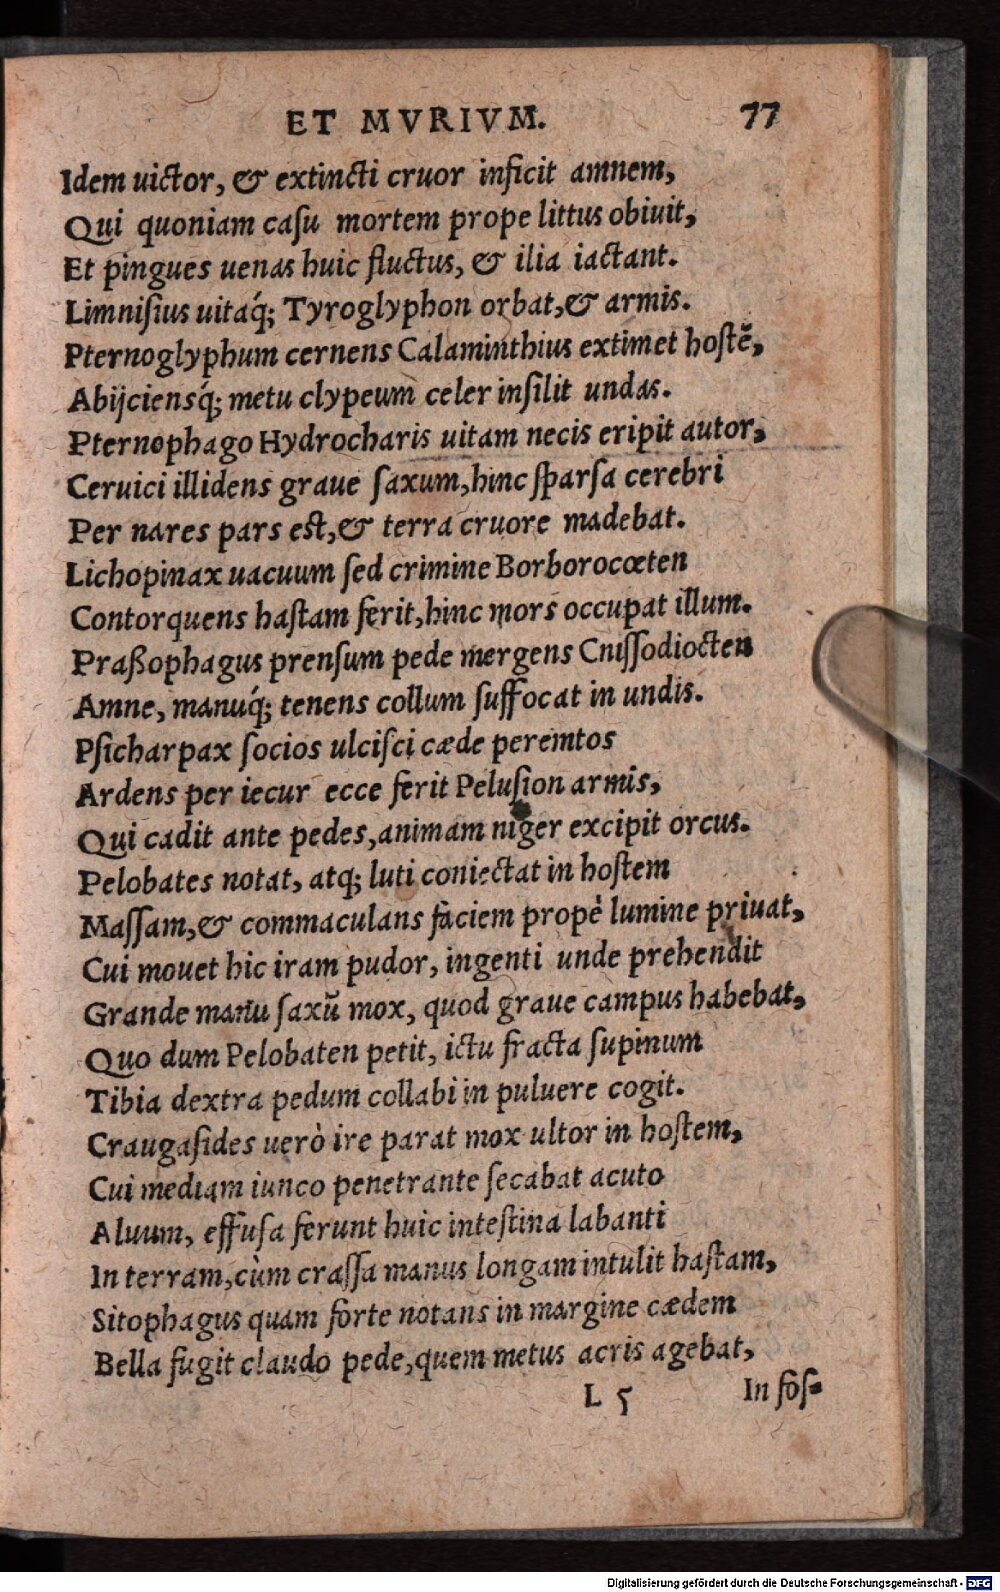 ET MVRIVM. 77
Idem uictor, & extincti cruor inficit amnem,
Qui quoniam caſu mortem prope littus obiuit,
Et pingues uenas huic fluctus, & ilia iactant.
Limniſius uitáq́; Tyroglyphon orbat,& armis.
Pternoglyphum cernens Calaminthius extimet hoſtẽ,
Abijciensq́; metu clypeum celer inſilit undas.
Pternophago Hydrocharis uitam necis eripit autor,
Ceruici illidens graue ſaxum,hinc ſparſa cerebri
Per nares pars eſt,& terra cruore madebat.
Lichopinax uacuum ſed crimine Borborocœten
Contorquens haſtam ferit,hinc mors occupat illum.
Praßophagus prenſum pede mergens Cniſſodiocten
Amne, manuq́; tenens collum ſuffocat in undis.
Pſicharpax ſocios ulciſci cæde peremtos
Ardens per iecur ecce ferit Peluſion armis,
Qui cadit ante pedes,animam niger excipit orcus.
Pelobates notat, atq; luti coniectat in hoſtem
Maſſam,& commaculans faciem propè lumine priuat,
Cui mouet hic iram pudor, ingenti unde prehendit
Grande manu ſaxũ mox, quod graue campus habebat,
Quo dum Pelobaten petit, ictu fracta ſupinum
Tibia dextra pedum collabi in puluere cogit.
Craugaſides uerò ire parat mox ultor in hoſtem,
Cui mediam iunco penetrante ſecabat acuto
Aluum, effuſa ferunt huic inteſtina labanti
In terram,cùm craſſa manus longam intulit haſtam,
Sitophagus quam forte notans in margine cædem
Bella fugit claudo pede,quem metus acris agebat,
L 5 In foſ⸗
Digitalisierung gefördert durch die Deutsche Forschungsgemeinschaft - DFG